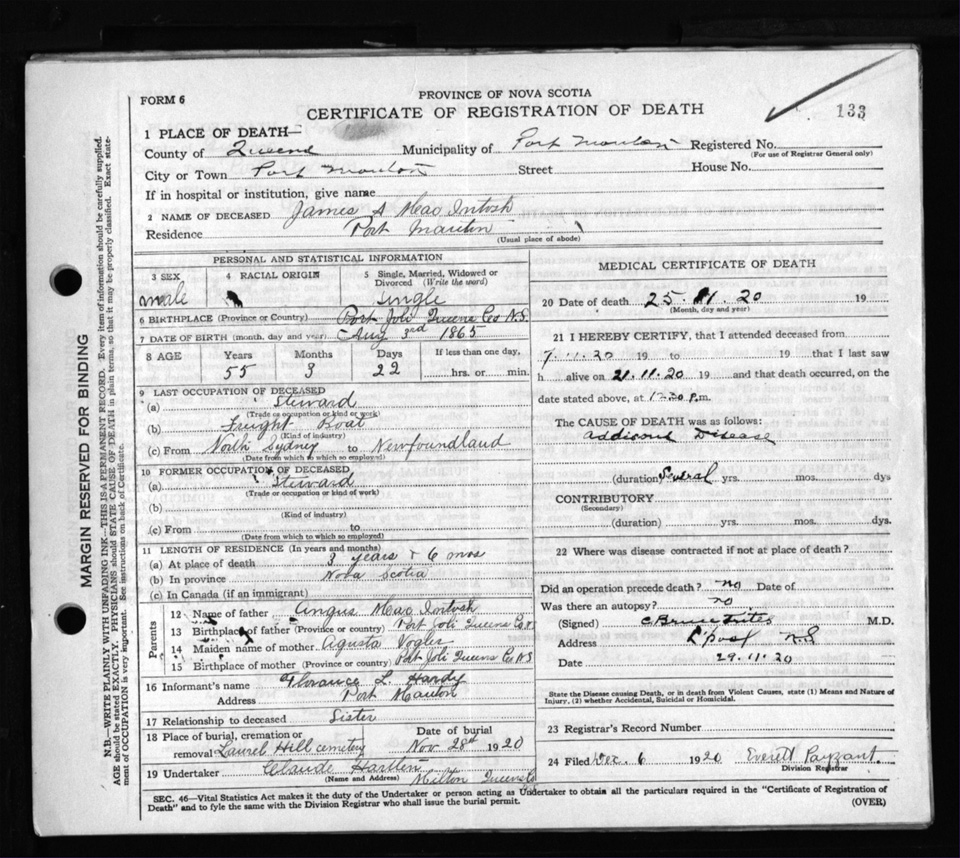 PROVINCE OF NOVA SCOTIA
FORM 6
CERTIFICATE OF REGISTRATION OF DEATH
133
1 PLACE OF DEATH—
County of Queens Municipality of Port Mouton Registered No.
(For use of Registrar General only)
City or Town Port Mouton Street House No.
If in hospital or institution, give name
2 NAME OF DECEASED James A MacIntosh
Residence Port Mouton
(Usual place of abode)
PERSONAL AND STATISTICAL INFORMATION
3 SEX 4 RACIAL ORIGIN 5 Single, Married, Widowed or Divorced (Write the word)
male Single
6 BIRTHPLACE (Province or Country) Port Joli Queens Co N.S.
7 DATE OF BIRTH (month, day and year) Aug 3rd 1865
8 AGE Years Months Days If less than one day,
55 3 22 hrs. or min.
9 LAST OCCUPATION OF DECEASED
(a) Steward
(Trade or occupation or kind of work)
(b) Freight Boat
(Kind of industry)
(c) From North Sydney to Newfoundland
(Date from which to which so employed)
10 FORMER OCCUPATION OF DECEASED
(a) Steward
(Trade or occupation or kind of work)
(b)
(Kind of industry)
(c) From to
(Date from which to which so employed)
11 LENGTH OF RESIDENCE (In years and months)
(a) At place of death 3 years + 6 mos
(b) In province Nova Scotia
(c) In Canada (if an immigrant)
Parents
12 Name of father Angus MacIntosh
13 Birthplace of father (Province or country) Port Joli Queens Co N.
14 Maiden name of mother Agusta Vogler
15 Birthplace of mother (Province or country) Port Joli Queens Co N S
16 Informant's name Florance L. Hardy
Address Port Mouton
17 Relationship to deceased Sister
18 Place of burial, cremation or removal Laurel Hill cemetery Date of burial Nov 28th 1920
19 Undertaker Claude Hartlen
(Name and Address) Milton Queens Co
MEDICAL CERTIFICATE OF DEATH
20 Date of death 25. 11. 20 19
(Month, day and year)
21 I HEREBY CERTIFY, that I attended deceased from
7.11.20 19 to 19 that I last saw
h alive on 21.11.20 19 and that death occurred, on the
date stated above, at 12.20 p.m.
The CAUSE OF DEATH was as follows:
Addisons Disease
(duration) Several yrs. mos. dys
CONTRIBUTORY
(Secondary)
(duration) yrs. mos. dys.
22 Where was disease contracted if not at place of death?
Did an operation precede death? no Date of
Was there an autopsy? no
(Signed) C Bruce Trites M.D.
Address L'pool N.S
Date 29.11.20
State the Disease causing Death, or in death from Violent Causes, state (1) Means and Nature of
Injury, (2) whether Accidental, Suicidal or Homicidal.
23 Registrar's Record Number
24 Filed Dec. 6 1920 Everett Payzant.
Division Registrar
SEC. 46—Vital Statistics Act makes it the duty of the Undertaker or person acting as Undertaker to obtain all the particulars required in the "Certificate of Registration of
Death" and to fyle the same with the Division Registrar who shall issue the burial permit.
(OVER)
MARGIN RESERVED FOR BINDING
N.B.—WRITE PLAINLY WITH UNFADING INK—THIS IS A PERMANENT RECORD. Every item of information should be carefully supplied.
AGE should be stated EXACTLY. PHYSICIANS should STATE CAUSE OF DEATH in plain terms, so that it may be properly classified. Exact state-
ment of OCCUPATION is very important. See instructions on back of Certificate.